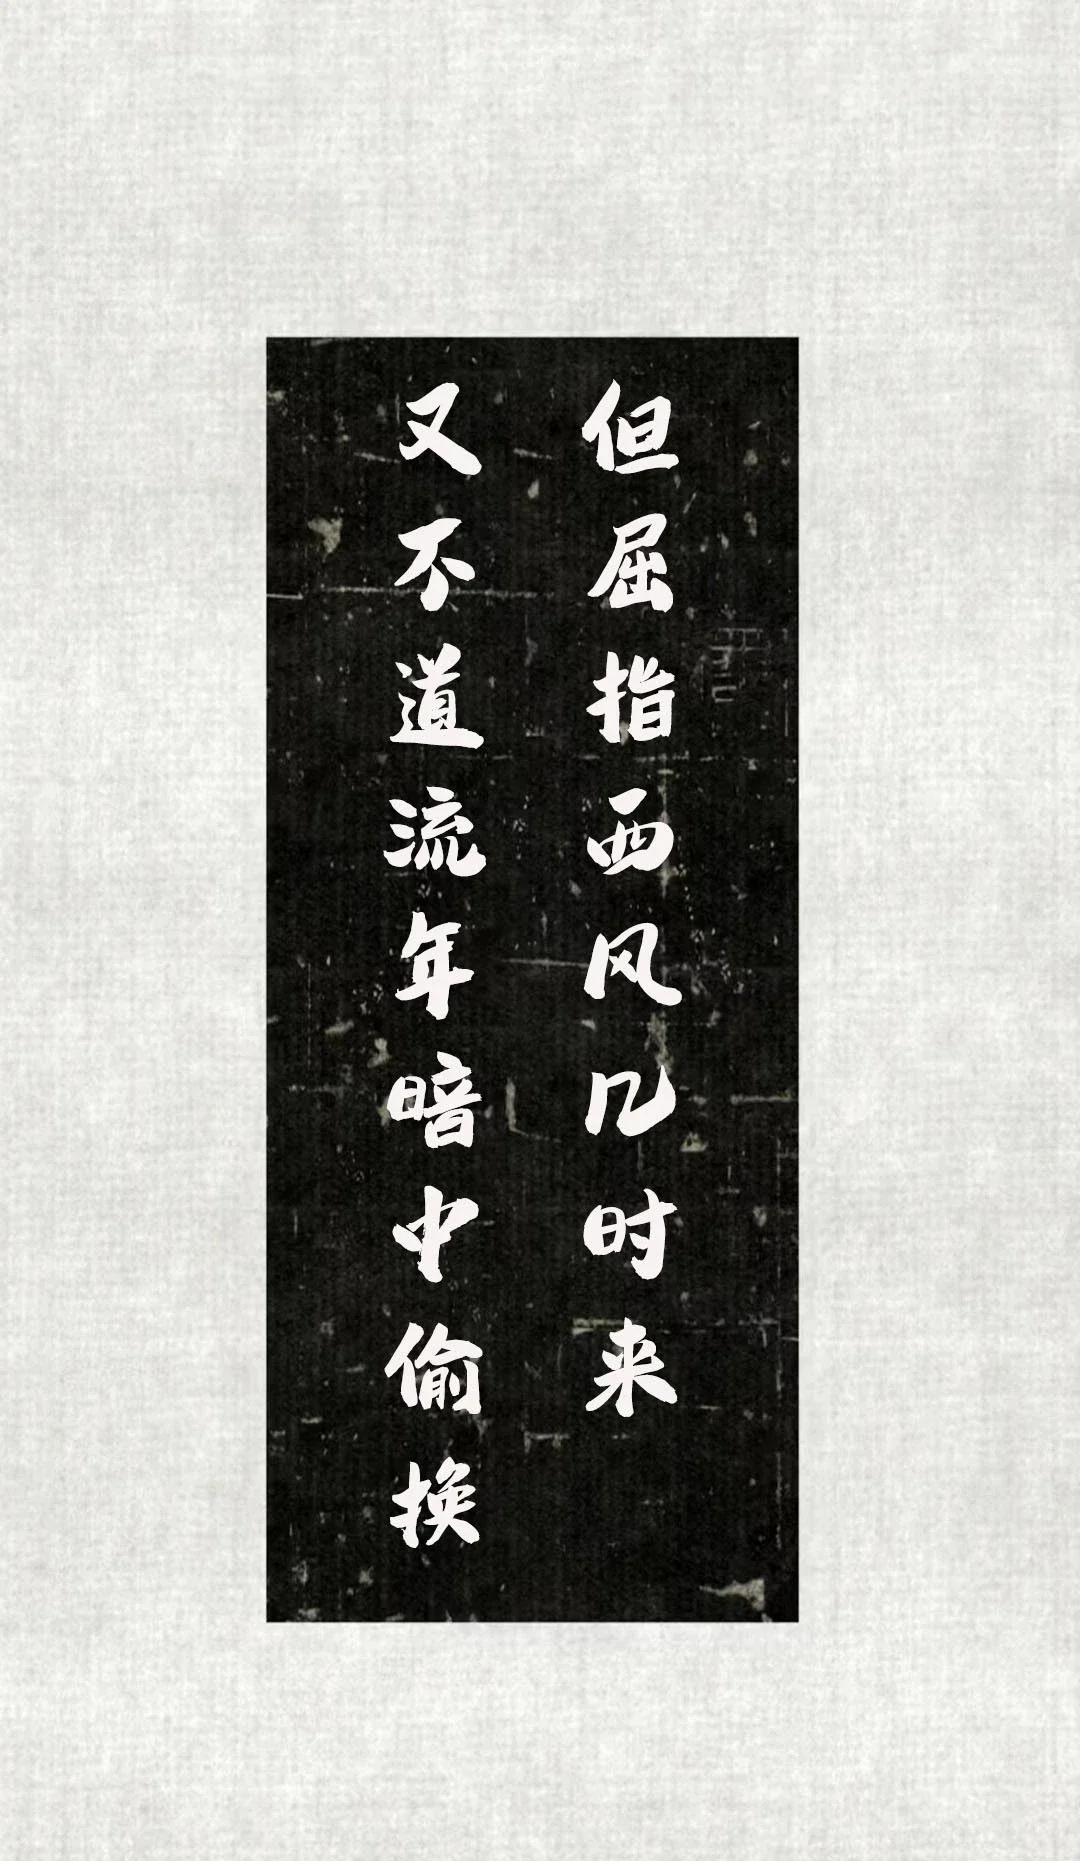 但屈指西风几时来
又不道流年暗中偷换